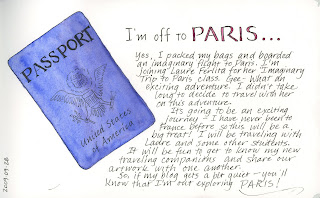 I'm off to PARIS...
PASSPORT
United States
of America
Yes, I packed my bags and boarded
an imaginary flight to Paris. I'm
joining Laure Ferlita for her Imaginary
Trip to Paris class. Gee- what an
exciting adventure. I didn't take
long to decide to travel with her
on this adventure.
It's going to be an exciting
journey - I have never been to
France before so this will be a
big treat! I will be traveling with
Laure and some other students.
It will be fun to get to know my new
traveling companions and share our
artwork with one another.
So if my blog gets a bit quiet - you'll
know that I'm out exploring PARIS!
2009.09.28